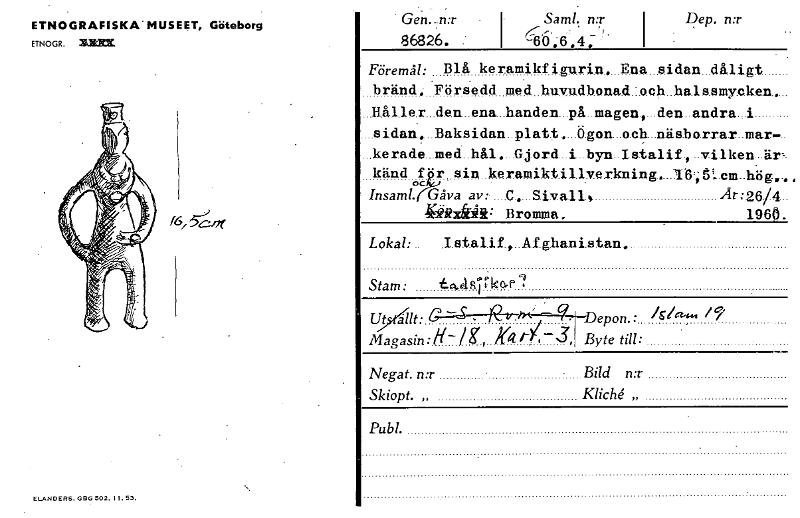 ETNOGRAFISKA MUSEET, Göteborg
ETNOGR.
16,5cm
ELANDERS. GBG 502. 11. 53.
Gen. n:r Saml. n:r Dep. n:r
86826. G 60.6.4.
Föremål: Blå keramikfigurin. Ena sidan dåligt
bränd. Försedd med huvudbonad och halssmycken.
Håller den ena handen på magen, den andra i
sidan. Baksidan platt. Ögon och näsborrar mar-
kerade med hål. Gjord i byn Istalif, vilken är
känd för sin keramiktillverkning. 16,5 cm hög...
och
Insaml./Gåva av: C. Sivall, År: 26/4
Köp från: Bromma. 1960.
Lokal: Istalif, Afghanistan.
Stam: tadsjiker?
Utställt: G-S. Rum-9. Depon.: Islam 19
Magasin: H-18, Kart.-3. Byte till:
Negat. n:r Bild n:r
Skiopt. „ Kliché „
Publ.